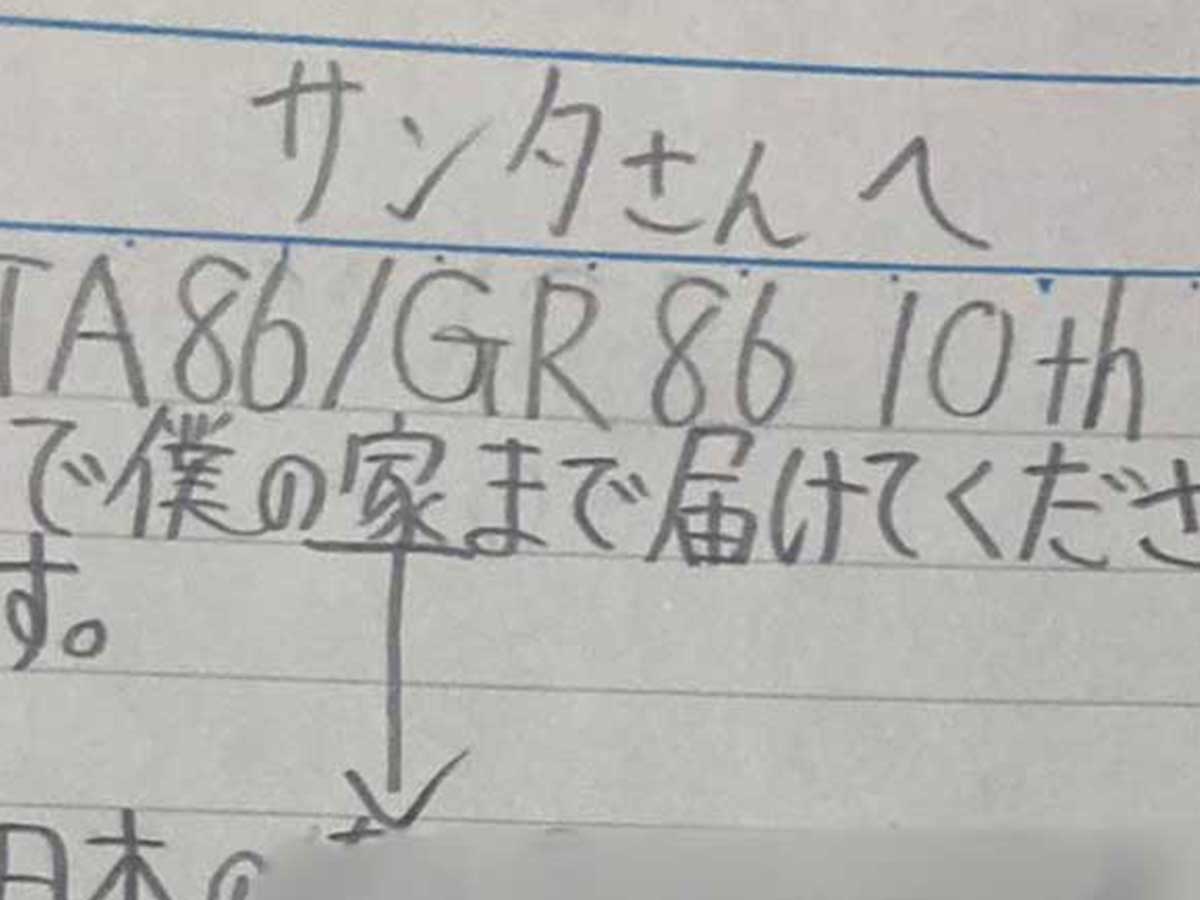 サンタさんへ
TA86/GR86 10th
で僕の家まで届けてくださ
す。
日本の